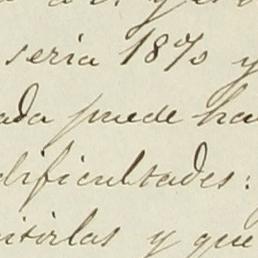 seria 18% y
ada puede ha
dificultades:
y que